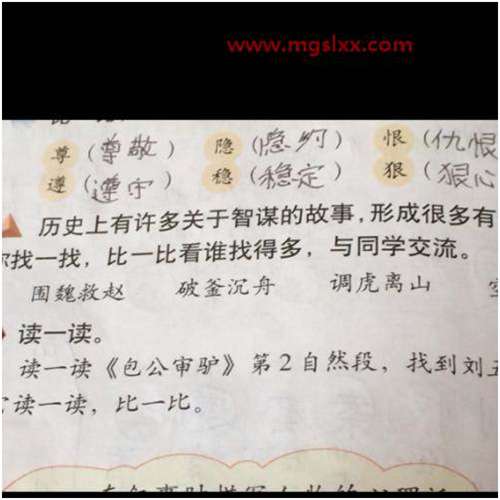 www.mgslxx.com
尊(尊敬) 隐(隐约) 恨(仇恨
遵(遵守) 稳(稳定) 狠(狠心
历史上有许多关于智谋的故事,形成很多有
你找一找,比一比看谁找得多,与同学交流。
围魏救赵 破釜沉舟 调虎离山
读一读。
读一读《包公审驴》第2自然段,找到刘五
读一读,比一比。